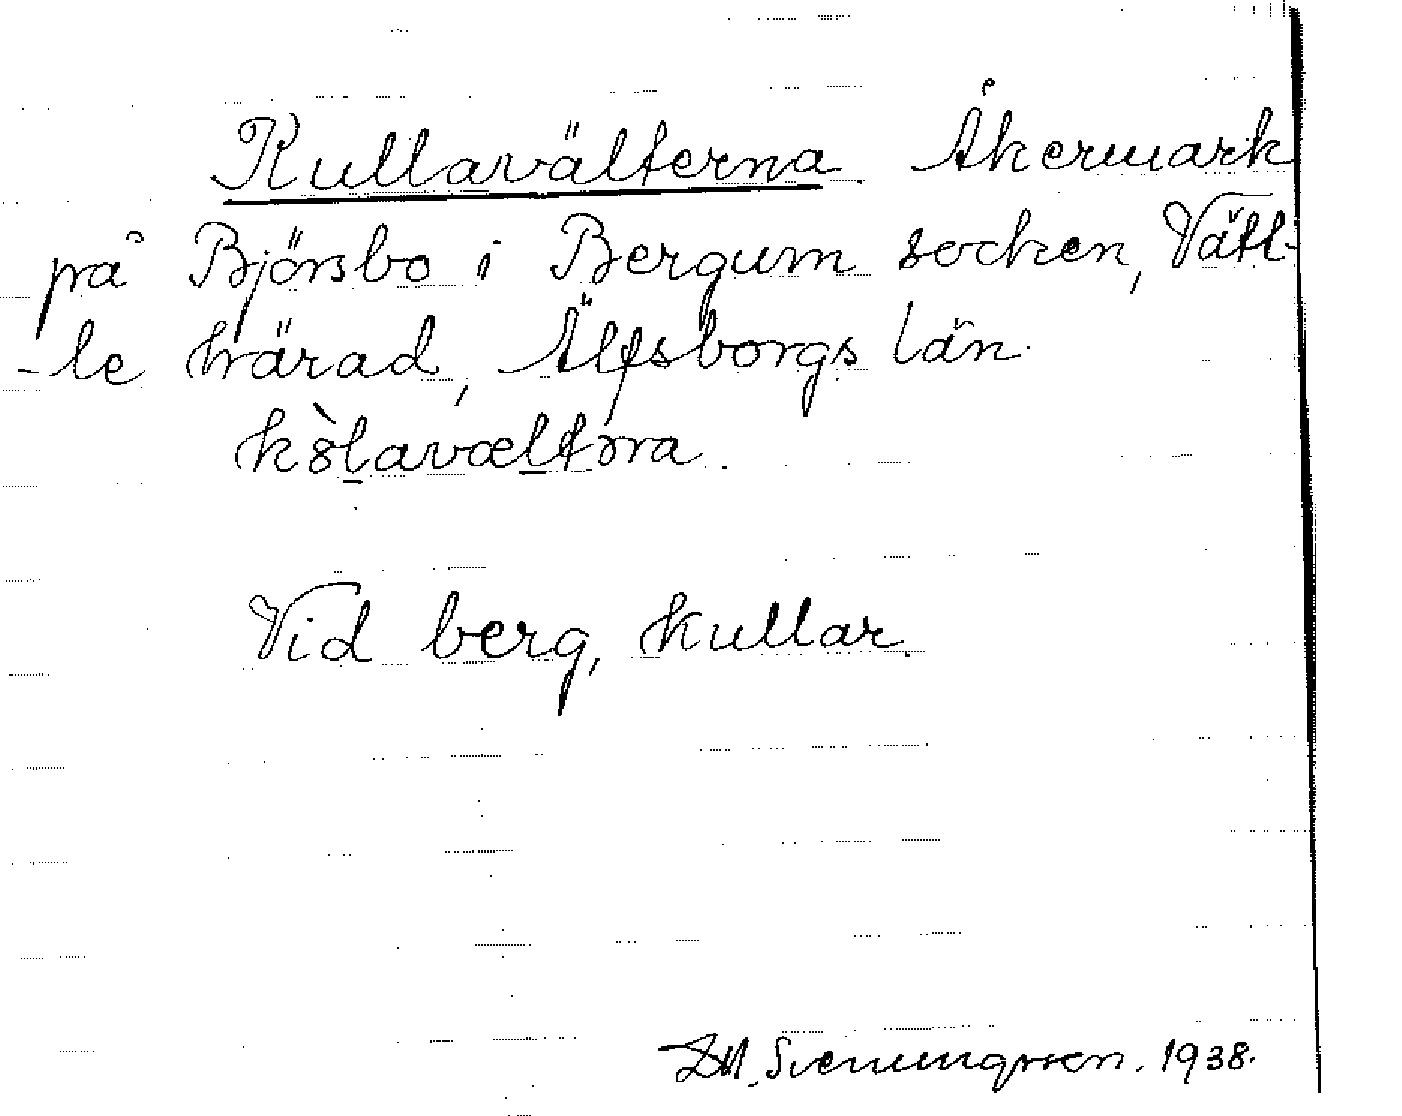 Kullavälterna Åkermark
på Björsbo i Bergum socken, Vätt-
-le härad, Älfsborgs län.
kòlavæltɔra.
Vid berg, kullar.
D.M. Svenungsson. 1938.